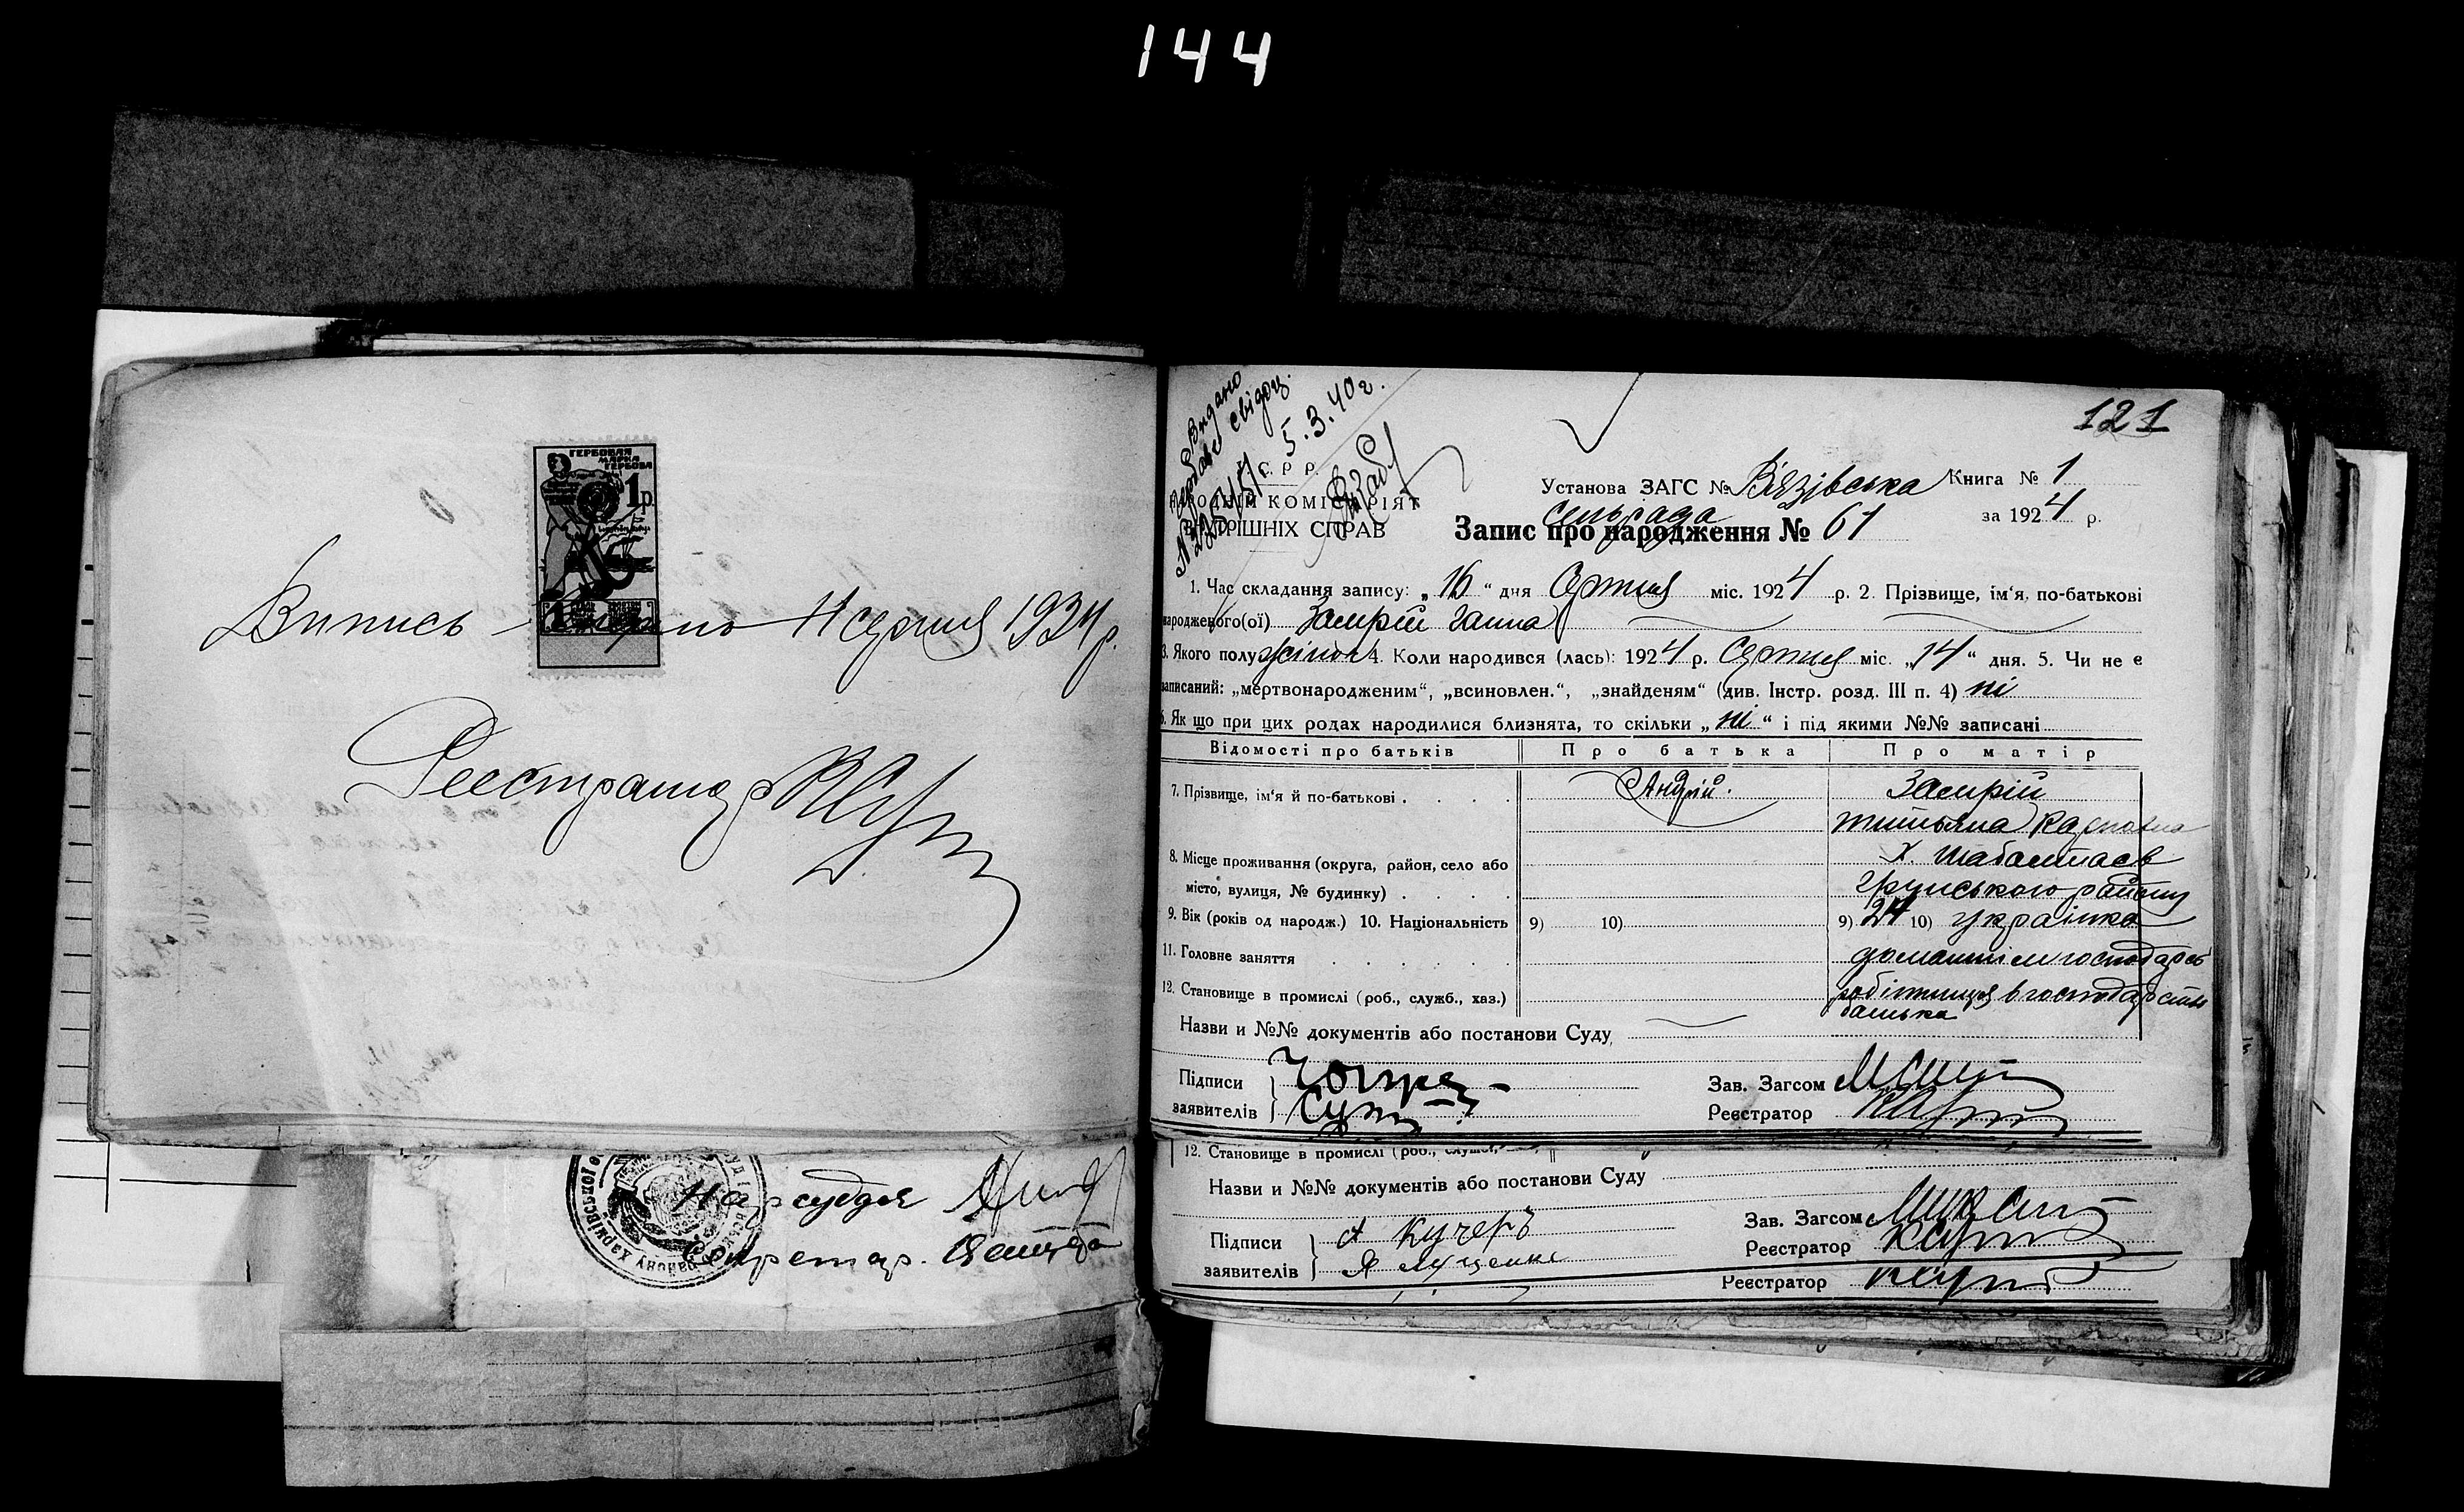 144
ГЕРБОВАЯ
МАРКА
ГЕРБОВА
1 р.
Випись видано 4 серпня 1934 р.
Реестратор
Нарсуддя
Секретар.
121
Видано
свідоц.
5.3.40 г.
С. Р. Р.
НАРОДНІЙ КОМІСАРІЯТ
ВНУТРІШНІХ СПРАВ
Установа ЗАГС № Вязівська Книга № 1
сельрада
за 1924 р.
Запис про народження № 61
1. Час складання запису: „16“ дня Серпня міс. 1924 р. 2. Прізвище, ім‘я, по-батькові
народженого(ої) Замрій Ганна
3. Якого полу жіноч 4. Коли народився (лась): 1924 р. Серпня міс. „14“ дня. 5. Чи не є
записаний: „мертвонародженим“, „всиновлен.“, „знайденям“ (див. Інстр. розд. III п. 4) ні
6. Як що при цих родах народилися близнята, то скільки „ні“ і під якими №№ записані
Відомості про батьків Про батька Про матір
7. Прізвище, ім‘я й по-батькові . . . . Андрій. Замрій
титьяна Карповна
8. Місце проживання (округа, район, село або х. Шабалтаєв
місто, вулиця, № будинку) . . . . Грунського району
9. Вік (років од народж.) 10. Національність 9) 10) 9) 24 10) українка
11. Головне заняття . . . . . . домашнім господарс
12. Становище в промислі (роб., служб., хаз.) робітниця в господарстві
батька
Назви и №№ документів або постанови Суду
Підписи
заявителів
Зав. Загсом
Реєстратор
12. Становище в промислі (роб., служб.,
Назви и №№ документів або постанови Суду
Підписи А Кучеръ
заявителів Я Луценко
Зав. Загсом
Реєстратор
Реєстратор